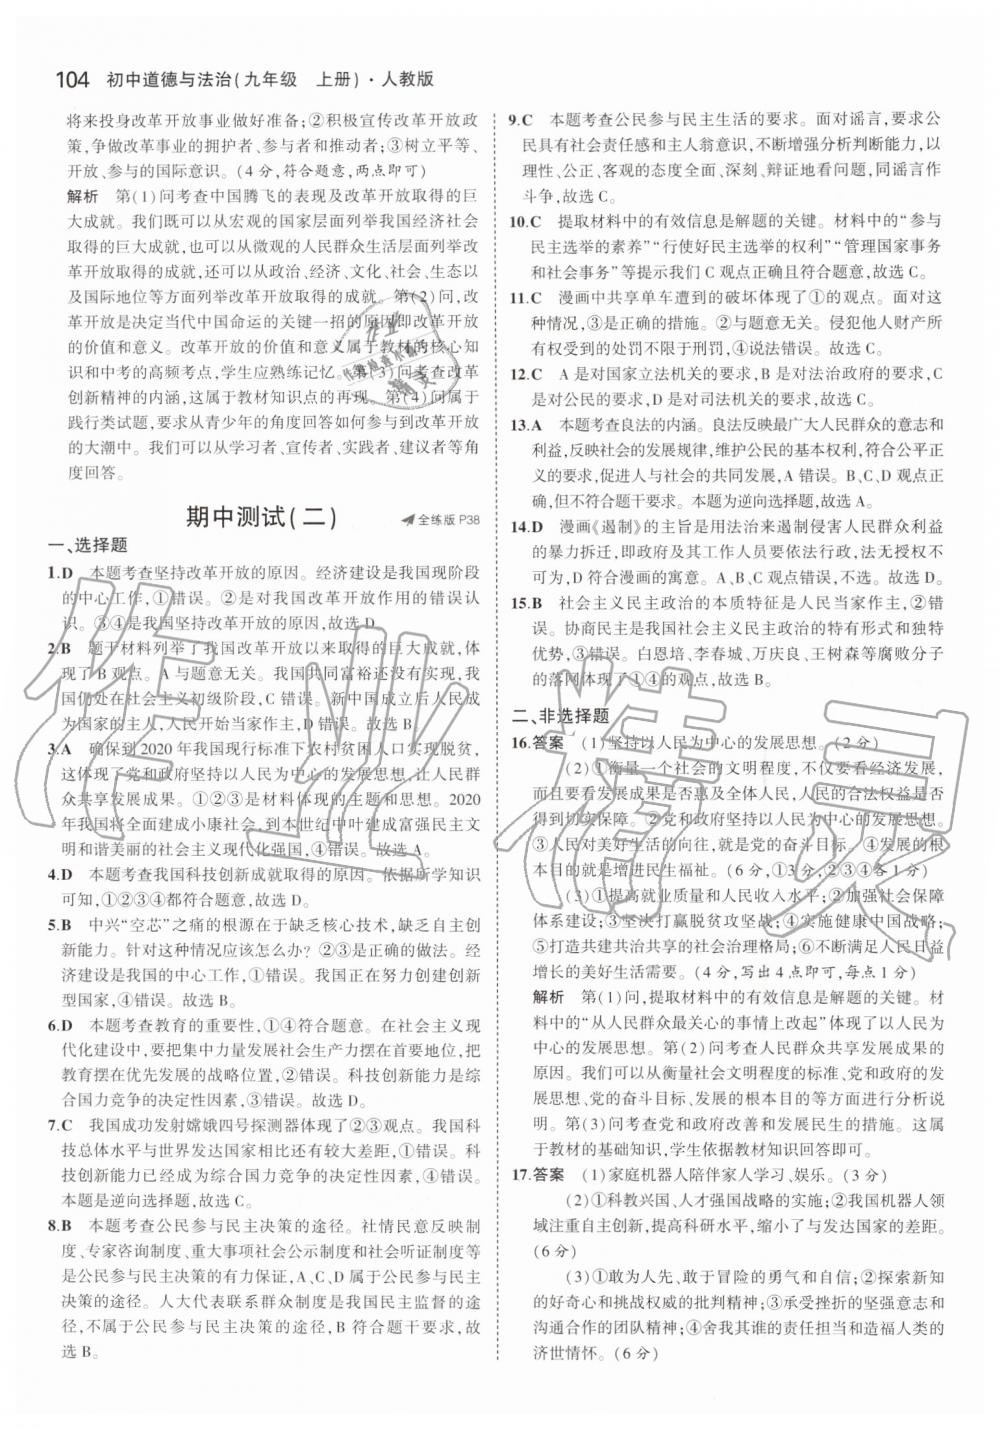 104 初中道德与法治(九年级 上册)·人教版
将来投身改革开放事业做好准备;②积极宣传改革开放政
策,争做改革事业的拥护者、参与者和推动者;③树立平等、
开放、参与的国际意识。(4分,符合题意,两点即可)
解析 第(1)问考查中国腾飞的表现及改革开放取得的巨
大成就。我们既可以从宏观的国家层面列举我国经济社会
取得的巨大成就,也可以从微观的人民群众生活层面列举改
革开放取得的成就,还可以从政治、经济、文化、社会、生态以
及国际地位等方面列举改革开放取得的成就。第(2)问,改
革开放是决定当代中国命运的关键一招的原因即改革开放
的价值和意义。改革开放的价值和意义属于教材的核心知
识和中考的高频考点,学生应熟练记忆。第(3)问考查改革
创新精神的内涵,这属于教材知识点的再现。第(4)问属于
践行类试题,要求从青少年的角度回答如何参与到改革开放
的大潮中。我们可以从学习者、宣传者、实践者、建议者等角
度回答。
期中测试(二) 全练版 P38
一、选择题
1.D 本题考查坚持改革开放的原因。经济建设是我国现阶段
的中心工作,①错误。②是对我国改革开放作用的错误认
识。③④是我国坚持改革开放的原因,故选D。
2.B 题干材料列举了我国改革开放以来取得的巨大成就,体
现了B观点。A与题意无关。我国共同富裕还没有实现,我
国仍处在社会主义初级阶段,C错误。新中国成立后人民成
为国家的主人,人民开始当家作主,D错误。故选B。
3.A 确保到2020年我国现行标准下农村贫困人口实现脱贫,
这体现了党和政府坚持以人民为中心的发展思想,让人民群
众共享发展成果。①②③是材料体现的主题和思想。2020
年我国将全面建成小康社会,到本世纪中叶建成富强民主文
明和谐美丽的社会主义现代化强国,④错误。故选A。
4.D 本题考查我国科技创新成就取得的原因。依据所学知识
可知,①②③④都符合题意,故选D。
5.B 中兴“空芯”之痛的根源在于缺乏核心技术,缺乏自主创
新能力。针对这种情况应该怎么办?②③是正确的做法。经
济建设是我国的中心工作,①错误。我国正在努力创建创新
型国家,④错误。故选B。
6.D 本题考查教育的重要性,①④符合题意。在社会主义现
代化建设中,要把集中力量发展社会生产力摆在首要地位,把
教育摆在优先发展的战略位置,②错误。科技创新能力是综
合国力竞争的决定性因素,③错误。故选D。
7.C 我国成功发射嫦娥四号探测器体现了②③观点。我国科
技总体水平与世界发达国家相比还有较大差距,①错误。科
技创新能力已经成为综合国力竞争的决定性因素,④错误。
本题是逆向选择,故选C。
8.B 本题考查公民参与民主决策的途径。社情民意反映制
度、专家咨询制度、重大事项社会公示制度和社会听证制度等
是公民参与民主决策的有力保证,A、C、D属于公民参与民主
决策的途径。人大代表联系群众制度是我国民主监督的途
径,不属于公民参与民主决策的途径,B符合题干要求,故
选B。
9.C 本题考查公民参与民主生活的要求。面对谣言,要求公
民具有社会责任感和主人翁意识,不断增强分析判断能力,以
理性、公正、客观的态度全面、深刻、辩证地看问题,同谣言作
斗争,故选C。
10.C 提取材料中的有效信息是解题的关键。材料中的“参与
民主选举的素养”“行使好民主选举的权利”“管理国家事务
和社会事务”等提示我们C观点正确且符合题意,故选C。
11.C 漫画中共享单车遭到的破坏体现了①的观点。面对这
种情况,③是正确的措施。②与题意无关。侵犯他人财产所
有权受到的处罚不限于刑罚,④说法错误。故选C。
12.C A是对国家立法机关的要求,B是对法治政府的要求,C
是对公民的要求,D是对司法机关的要求,故选C。
13.A 本题考查良法的内涵。良法反映最广大人民群众的意志和
利益,反映社会的发展规律,维护公民的基本权利,符合公平正
义的要求,促进人与社会的共同发展,A错误。B、C、D观点正
确,但不符合题干要求。本题为逆向选择题,故选A。
14.D 漫画《遏制》的主旨是用法治来遏制侵害人民群众利益
的暴力拆迁,即政府及其工作人员要依法行政,依法办事,因
此,D符合漫画的寓意。A、B、C观点错误,不选。故选D。
15.B 社会主义民主政治的本质特征是人民当家作主,②错
误。协商民主是我国社会主义民主政治的特有形式和独特
优势,③错误。白恩培、李春城、万庆良、王树森等腐败分子
的落网体现了①④的观点,故选B。
二、非选择题
16.答案 (1)坚持以人民为中心的发展思想。(2分)
(2)①衡量一个社会的文明程度,不仅要看经济发展,
而且要看发展成果是否惠及全体人民,人民的合法权益是否
得到切实保障。②党和政府坚持以人民为中心的发展思想。
③人民对美好生活的向往,就是党的奋斗目标。④发展的根
本目的就是增进民生福祉。(6分,①②2分,③④各1分)
(3)①提高就业质量和人民收入水平;②加强社会保障
体系建设;③坚决打赢脱贫攻坚战;④实施健康中国战略;
⑤打造共建共治共享的社会治理格局;⑥不断满足人民日益
增长的美好生活需要。(4分,写出4点即可,每点1分)
解析 第(1)问,提取材料中的有效信息是解题的关键。材
料中的“从人民群众最关心的事情上改起”体现了以人民为
中心的发展思想。第(2)问考查人民群众共享发展成果的
原因。我们可以从衡量社会文明程度的标准、党和政府的发
展思想、党的奋斗目标、发展的根本目的等方面进行分析。
第(3)问考查党和政府改善和发展民生的措施。这属
于教材的基础知识,学生依据教材知识回答即可。
17.答案 (1)家庭机器人陪伴家人学习、娱乐。(3分)
(2)①科教兴国、人才强国战略的实施;②我国机器人领
域注重自主创新,提高科研水平,缩小了与发达国家的差距。
(6分)
(3)①敢为人先、敢于冒险的勇气和自信;②探索新知
的好奇心和挑战权威的批判精神;③承受挫折的坚强意志和
沟通合作的团队精神;④舍我其谁的责任担当和造福人类的
济世情怀。(6分)
作业精灵